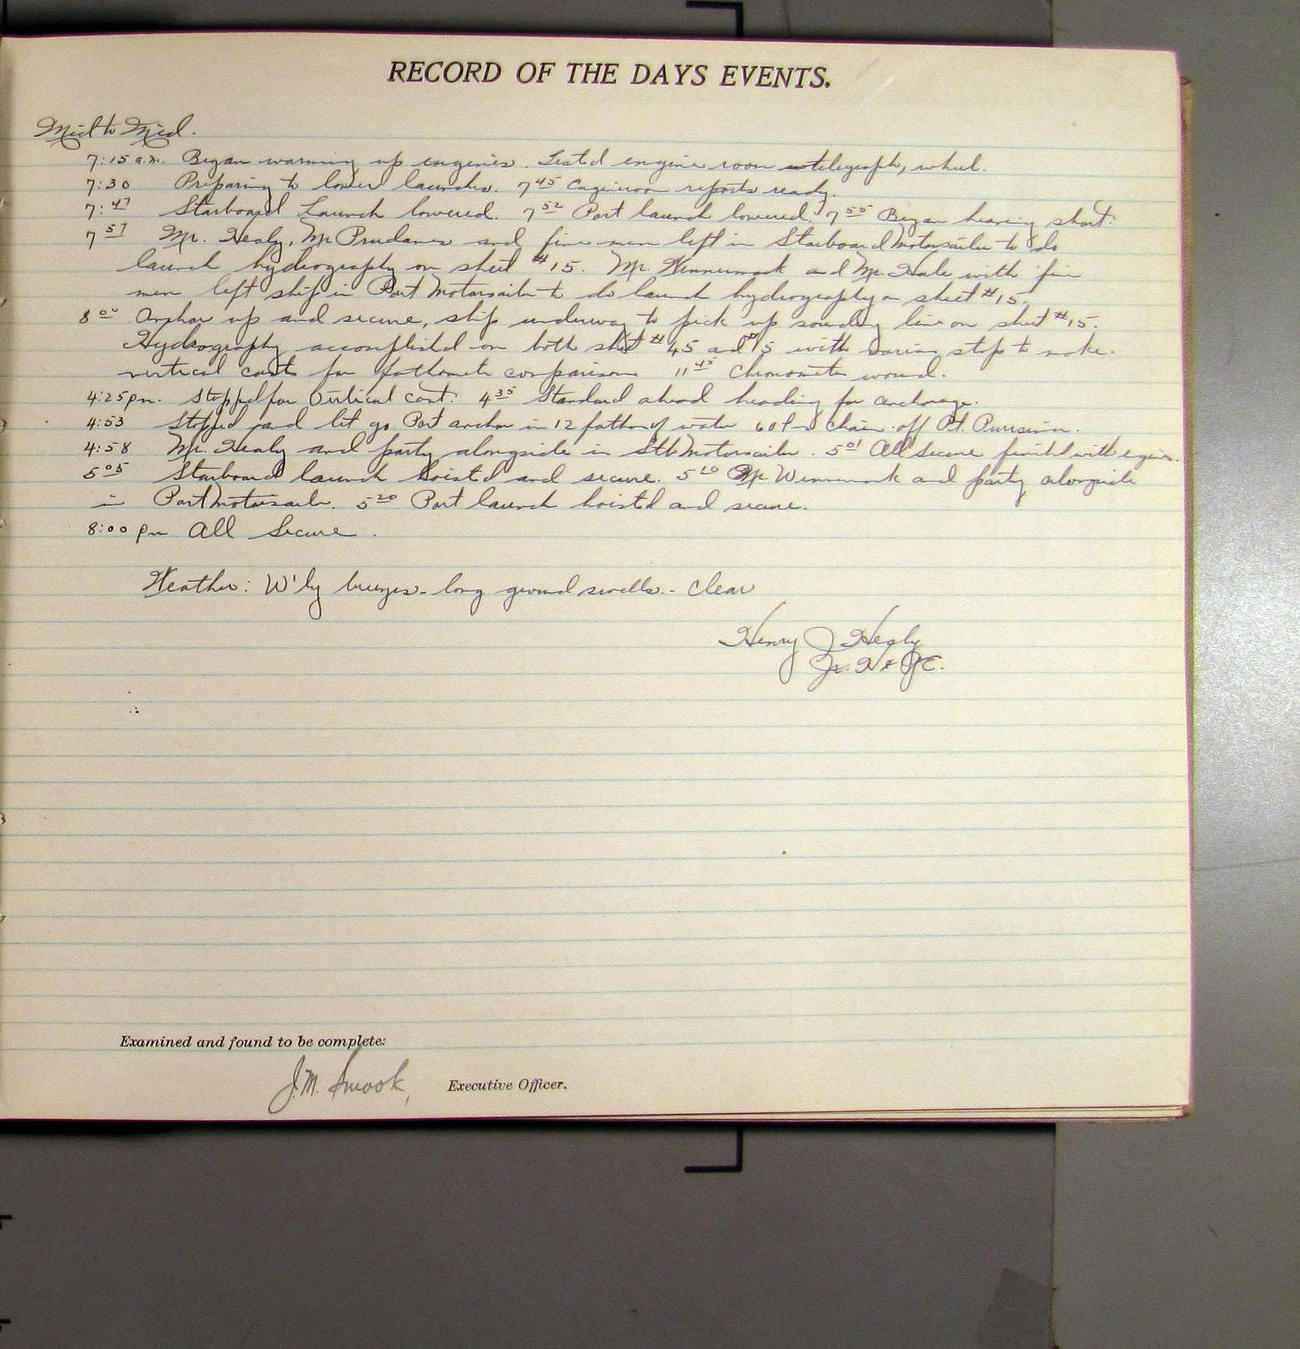 RECORD OF THE DAYS EVENTS.
Mid to Mid.
7:15 a.m. Began warming up engines. Test'd engine room telegraph, wheel.
7:30 Preparing to lower launches. 7 45 Engineroom reports ready.
7:47 Starboard Launch lowered. 7 52 Port launch lowered. 7 55 Began heaving short.
7 57 Mr. Healy, Mr. and five men left in Starboard Motorsailer to do
launch hydrography on sheet #15. Mr. Winnermark and Mr. Hale with five
men left ship in Port Motorsailer to do launch hydrography on sheet #15.
8 00 Anchor up and secure, ship underway to pick up sounding line on sheet #15.
Hydrography accomplish'd on both sheet #45 and #5 with stop to make
vertical casts for fathometer comparison 11 45 Chronometer wound.
4:25 pm. Stopped for Vertical Cast. 4 35 Standard ahead heading for anchorage.
4:53 Stopped and let go Port anchor in 12 fathom of water 60 fms chain off Pt.
4:58 Mr. Healy and party alongside in Stb Motorsailer. 5 01 All secure finish'd with engines.
5 05 Starboard launch hoist'd and secure. 5 10 Mr Winnermark and party alongside
in Port Motorsailer. 5 20 Port launch hoist'd and secure.
8:00 pm All Secure.
Weather: W'ly breezes - long ground swells - clear
Henry J Healy
Jr. H & G E.
Examined and found to be complete:
J.M. Smook, Executive Officer.